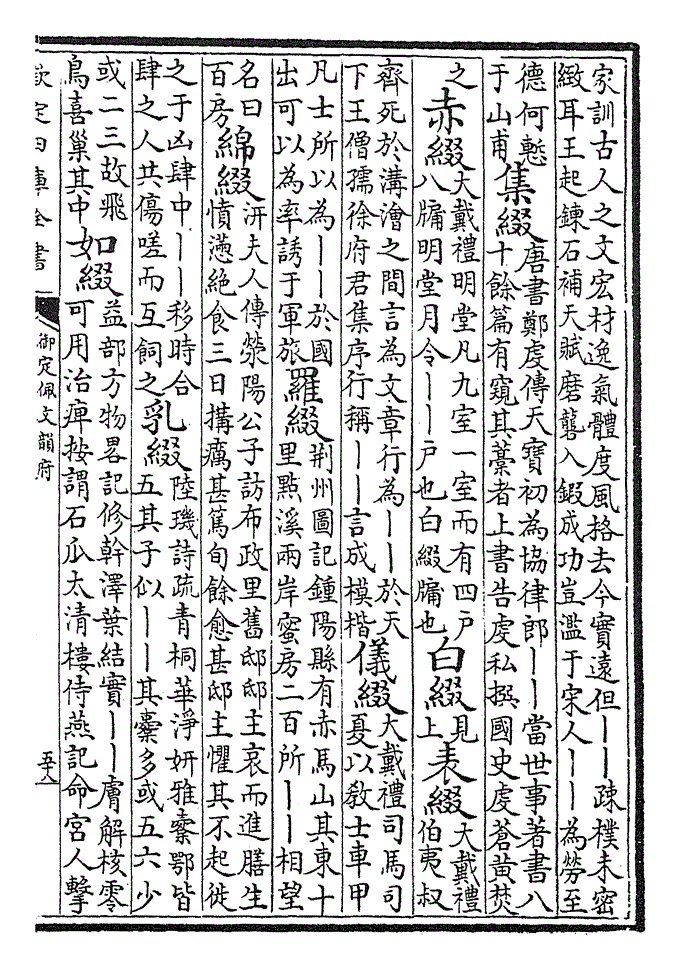 家訓古人之文宏材逸氣體度風格去今實遠但丨丨疎樸未密
緻耳王起鍊石補天賦磨礱入鍜成功豈濫于宋人丨丨為勞至
德何慙
于山甫
集綴
唐書鄭虔傳天寶初為協律郎丨丨當世事著書八
十餘篇有窺其藁者上書告虔私撰國史虔蒼黃焚
之
赤綴
大戴禮明堂凡九室一室而有四戶
八牖明堂月令丨丨戶也白綴牖也
白綴
見
上
表綴
大戴禮
伯夷叔
齊死於溝澮之間言為文章行為丨丨於天
下王僧孺徐府君集序行稱丨丨言成模楷
儀綴
大戴禮司馬司
夏以敎士車甲
凡士所以為丨丨於國
出可以為率誘于軍旅
羅綴
荆州圖記鍾陽縣有赤馬山其東十
里㸃溪兩岸蜜房二百所丨丨相望
名曰
百房
綿綴
汧夫人傳滎陽公子訪布政里舊邸邸主哀而進膳生
憤懣絕食三日搆癘甚篤旬餘愈甚邸主懼其不起徙
之于凶肆中丨丨移時合
肆之人共傷嗟而互飼之
乳綴
陸璣詩疏青桐華淨妍雅橐鄂皆
五其子似丨丨其橐多或五六少
或二三故飛
鳥喜巢其中
如綴
益部方物畧記修幹澤葉結實丨丨膚解核零
可用治痺按謂石瓜太清樓侍燕記命宮人擊
欽定四庫全書
御定佩文韻府
五十八